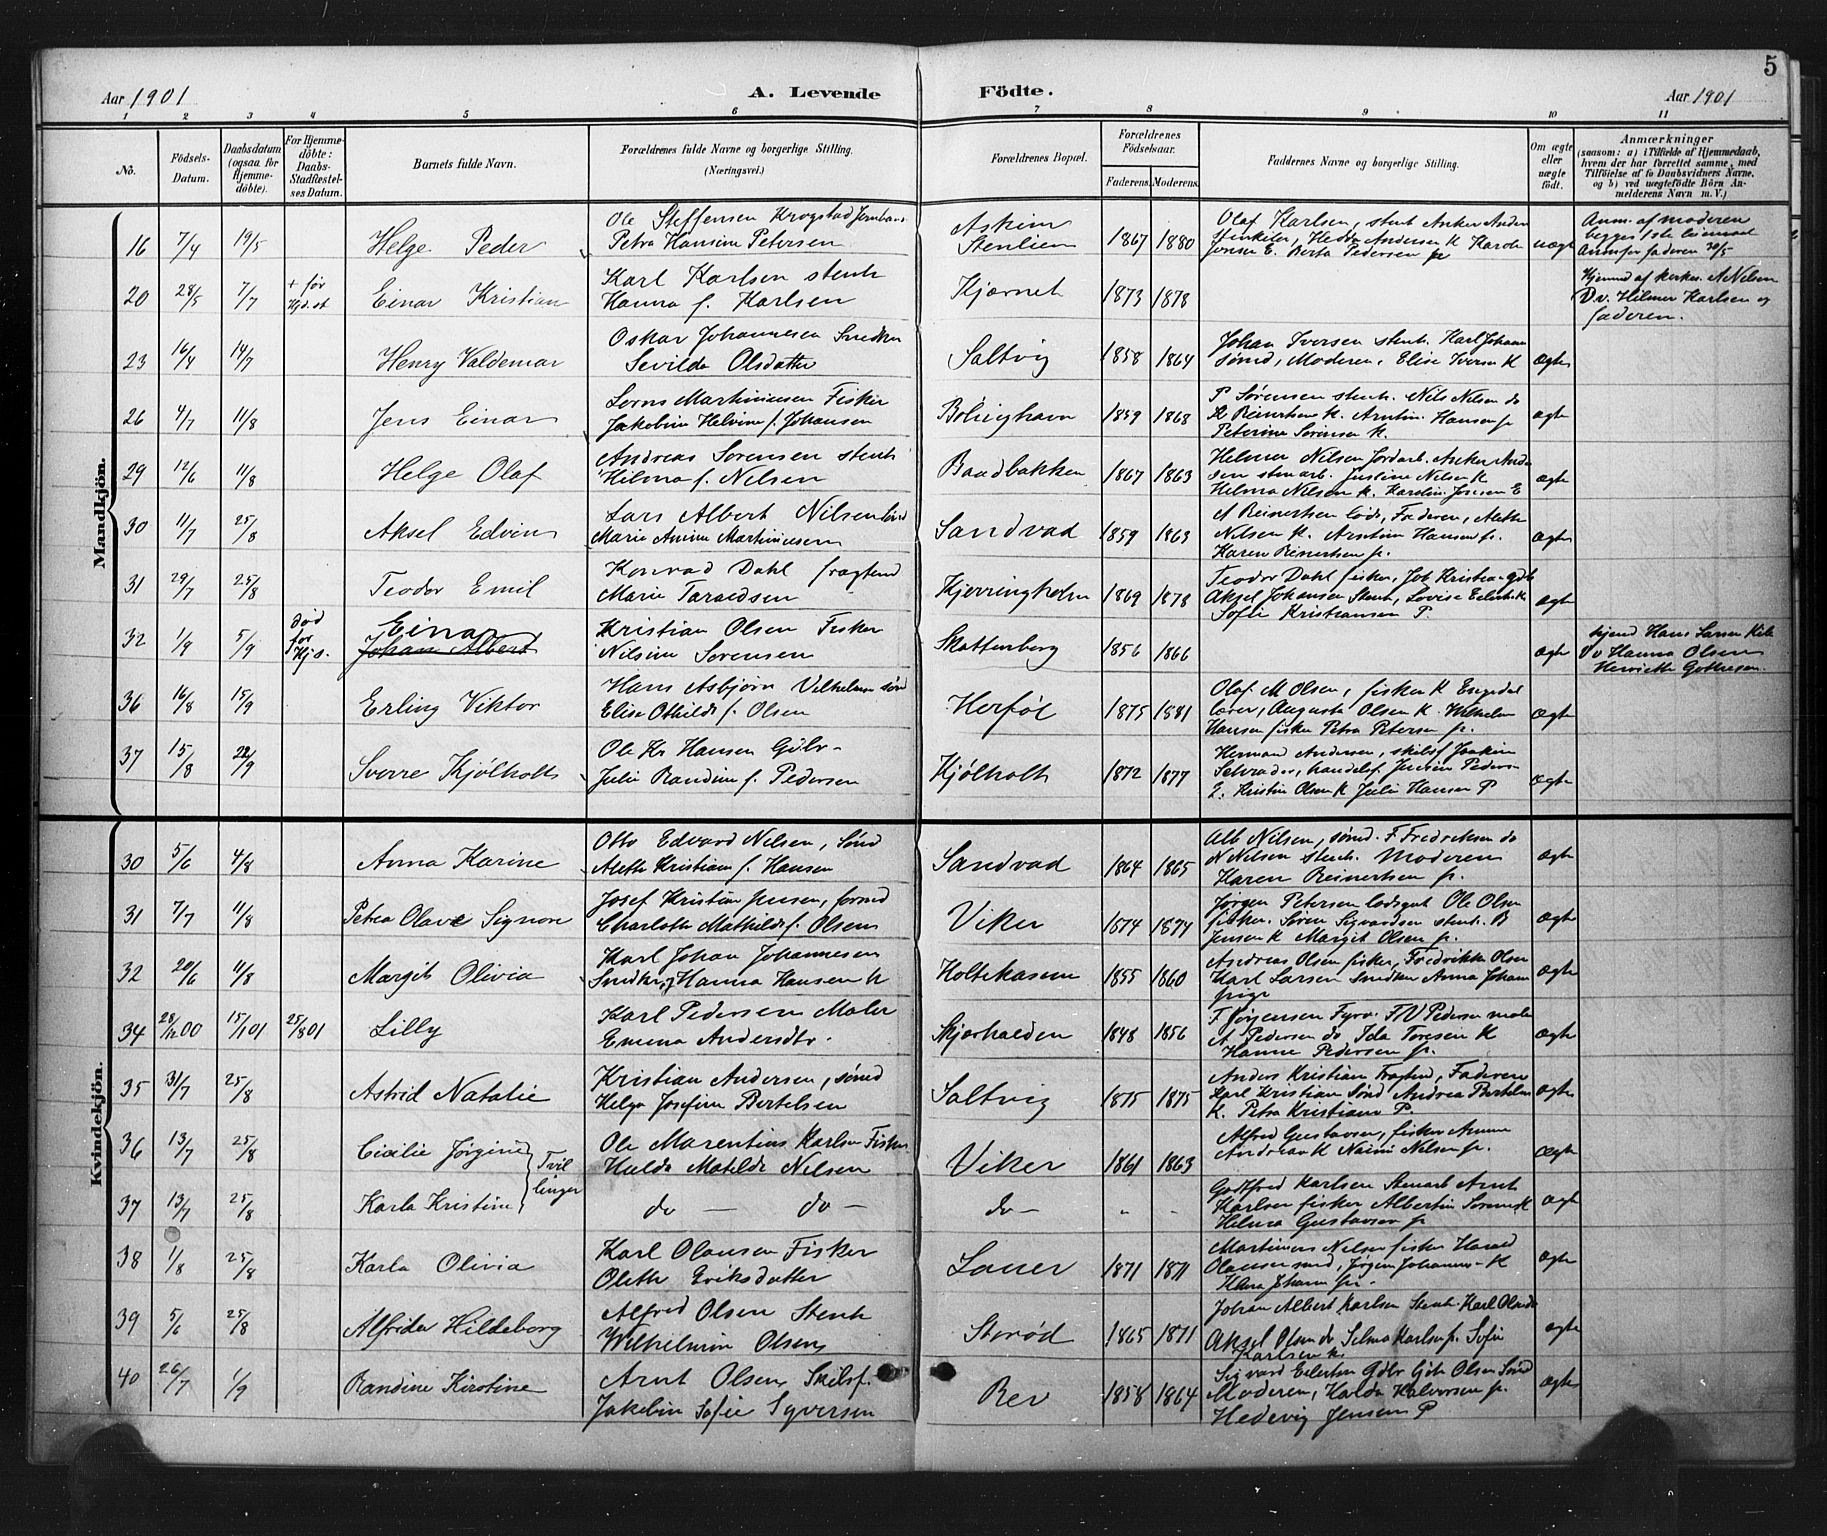 5
Aar 1901 A. Levende Födte. Aar 1901
1 2 3 4 5 6 7 8 9 10 11
No.
Födsels-Datum.
Daabsdatum (ogsaa for Hjemmedöbte).
For Hjemmedöbte: Daabs-Stadfæstelses Datum.
Barnets fulde Navn.
Forældrenes fulde Navne og borgerlige Stilling. (Næringsvei.)
Forældrenes Bopæl.
Forældrenes Födselsaar.
Faderens. Moderens.
Faddernes Navne og borgerlige Stilling.
Om ægte eller uægte födt.
Anmærkninger
(saasom: a) i Tilfælde af Hjemmedaab, hvem der har forrettet samme, med Tilföielse af to Daabsvidners Navne, og b) ved uægtefödte Börn Anmelderens Navn m. V.)
Mandkjön.
16 7/4 19/5 Helge Peder
Ole Steffensen Krogstad
Petra Hansine Petersen
Askim
Stenlien 1867 1880
Olaf Karlsen, stenh Anker Ander
Berta Pedersen p uægt
Anm. af moderen
20 28/5 7/7 + før Hjd. st Einar Kristian
Karl Karlsen stenh
Hanna f. Karlsen
Kjærnet 1873 1878
A Nilsen
Dv. Hilmer Karlsen og
faderen.
23 16/4 14/7 Henry Valdemar
Oskar Johannesen Snedker
Sevilda Olsdatter
Saltvig 1858 1864
Johan Iversen stenh. Karl Johan
Moderen, Elise Iversen K ægte
26 4/7 11/8 Jens Einar
Martiniusen Fisker
Jakobine Helvine f. Johansen
Bölinghavn 1859 1868
P Sørensen stenh. Nils Nilsen do
Reinertsen K. Arntine Hansen p
Peterine Sørensen K. ægte
29 12/6 11/8 Helge Olaf
Andreas Sørensen stenh
Hilma f. Nilsen
Baadbakken 1867 1863
Helmer Nilsen Jordarb. Anker Ande
Justine Nilsen K
Helma Nilsen K. ægte
30 11/7 25/8 Aksel Edvin
Lars Albert Nilsen
Marie Martiniusen
Sandvad 1859 1863
A Reinertsen lods, Faderen, Alethe
Nilsen K. Arntine Hansen p.
Karen Reinertsen p. ægte
31 29/7 25/8 Teodor Emil
Konrad Dahl fragtmd
Marie Taraldsen
Kjerringholm 1869 1878
Teodor Dahl fisker, Joh Kristian
Aksel Johansen Stenh, Lovise
Sofie Kristiansen P. ægte
32 1/9 5/9 død før Hj. s. Einar
Johan Albert
Kristian Olsen Fisker
Nilsine Sørensen
Skottenberg 1856 1866 ægte
Hans Larsen
Dv Hanna Olsen
36 16/8 15/9 Erling Viktor
Hans Asbjørn Vilhelmsen
Elise Othilde f. Olsen
Herføl 1875 1881
Olaf M Olsen, fisker K Engedal
lærer, Augusta Olsen K. Wilhelm
Hansen fisker Petra Petersen p. ægte
37 15/8 22/9 Sverre Kjølholt
Ole Kr Hansen Gdbr
Julie Randine f. Pedersen
Kjølholt 1872 1877
Herman Andersen, skibsf Joakim
Schrader, handelsf. Pedersen
Kristin Olsen K Julie Hansen P ægte
Kvindekjön.
30 5/6 4/8 Anna Karine
Otto Edvard Nilsen, Sømd
Alethe Kristiane f. Hansen
Sandvad 1864 1865
Alb Nilsen, sømd. F. Fredriksen do
N Nilsen stenh. Moderen
Karen Reinertsen p. ægte
31 7/7 11/8 Petra Olave Signora
Josef Kristian Jensen, formd
Charlotte Mathilde f. Olsen
Viker 1874 1874
Jørgen Petersen lodsgut Ole Olsen
fisker. Søren Sigvardsen stenh. B
Jensen K Margit Olsen p. ægte
32 20/6 11/8 Margit Olivia
Karl Johan Johannesen
Snedker, Hanna Hansen
Holtekasene 1855 1860
Andreas Olsen fisker, Fredrikke Olsen
Karl Larsen Snedker Anna Johan
pige ægte
34 28/12 00 15/1 01 25/8 01 Lilly
Karl Pedersen Maler
Emma Andersdtr.
Skjærhalden 1848 1856
F Jørgensen Fyrv. F V Pedersen maler
A Pedersen do Ida Toresen K
Hanne Pedersen p. ægte
35 31/7 25/8 Astrid Natalie
Kristian Andersen, sømd
Helga Josefine Bertelsen
Saltvig 1875 1875
Anders Kristian Fragtmd, Faderen
Karl Kristian Sømd Andrea Bertelsen
K. Petra Kristians P. ægte
36 13/7 25/8 Cicilie Jørgine
Tvillinger
Ole Marentius Karlsen Fisker
Hulda Matilde Nilsen
Viker 1861 1863
Alfred Gustavsen, fisker
K Naimi Nilsen p. ægte
37 13/7 25/8 Karla Kristine
do — do —
do — " "
Godtfred Karlsen Stenarb Arnt
Karlsen fisker Albertine Sørensen K
Helma Gustavsen p ægte
38 1/8 25/8 Karla Olivia
Karl Olausen Fisker
Oleth Eriksdatter
Lauer 1871 1871
Martinius Nilsen fisker Harald
Olausen smd, Jørgine Johannes K
ægte
39 5/6 25/8 Alfrida Hildeborg
Alfred Olsen Stenh
Wilhelmine Olsen
Storød 1865 1871
Johan Albert Karlsen Stenh Karl
Aksel Olsen do Selma Karlsen p. Sofie
Karlsen K. ægte
40 26/7 1/9 Randine Kirstine
Arnt Olsen Skibsf.
Jakobin Sofie Syversen
Rev 1858 1864
Sigvard Eilertsen Gdbr Olsen Sømd
Moderen, Hulda Halvorsen p.
Hedevig Jensen P ægte